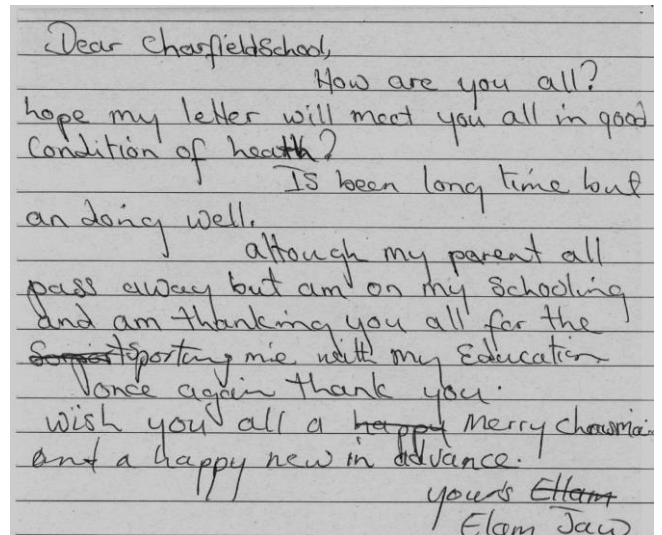 Dear CharfieldSchool,
How are you all?
hope my letter will meet you all in good
Condition of heath?
IS been long time but
an doing well.
altough my parent all
pass away but am on my Schooling
and am thanking you all for the
Sporting mie with my Education
once again thank you.
wish you all a happy Merry
and a happy new in advance.
yours Ellam
Elam Jaw